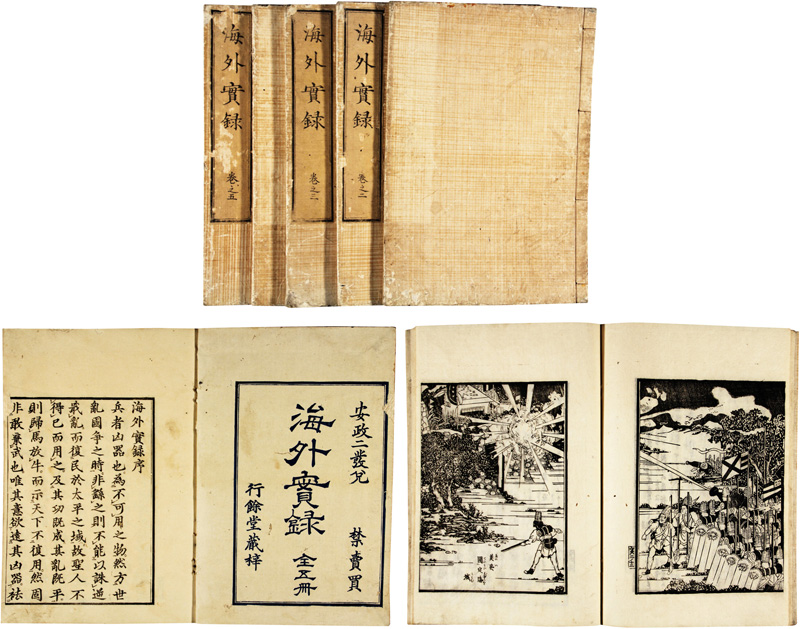 海外實録 卷之二
海外實録 卷之三
海外實録 卷之五
安政二發兌 禁賣買
海外實録 全五冊
行餘堂藏梓
海外實録序
兵者凶器也為不可用之物然方世
亂國爭之時非繇之則不能以誅逆
戡亂而復民於太平之域故聖人不
得已而用之及其功既成其亂既平
則歸馬放牛而示天下不復用然固
非敢棄武也唯其意欲遠其凶器祛